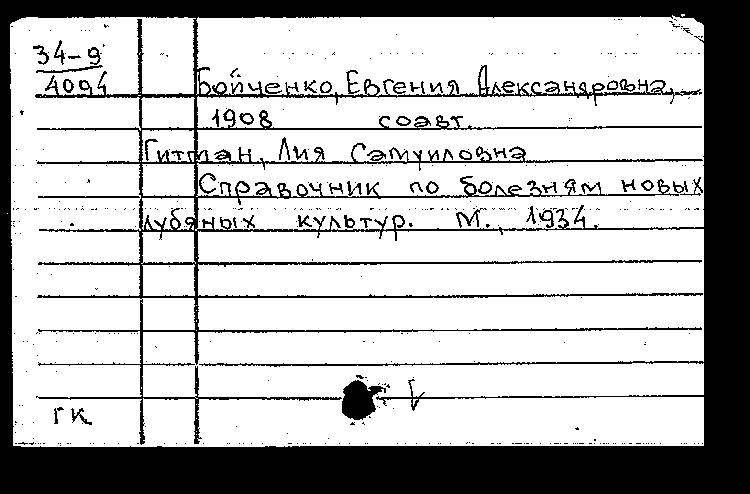 34-9
4094
Бойченко, Евгения Александровна,
1908 соавт.
Гитман, Лия Самуиловна
Справочник по болезням новых
лубяных культур. М., 1934.
ГК